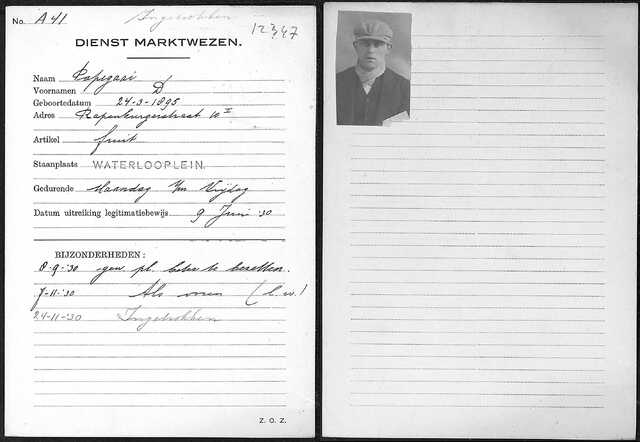 No. A 41
Ingetrokken
12347
DIENST MARKTWEZEN.
Naam Papegaai
Voornamen D
Geboortedatum 24-3-1895
Adres Rapenburgerstraat 10 I
Artikel fruit
Staanplaats WATERLOOPLEIN.
Gedurende Maandag t/m Vrijdag
Datum uitreiking legitimatiebewijs 9 Juni '30
BIJZONDERHEDEN:
8-9-'30 gew. pl. beter te bezetten.
7-11-'30 Als
24-11-'30 Ingetrokken
Z. O. Z.